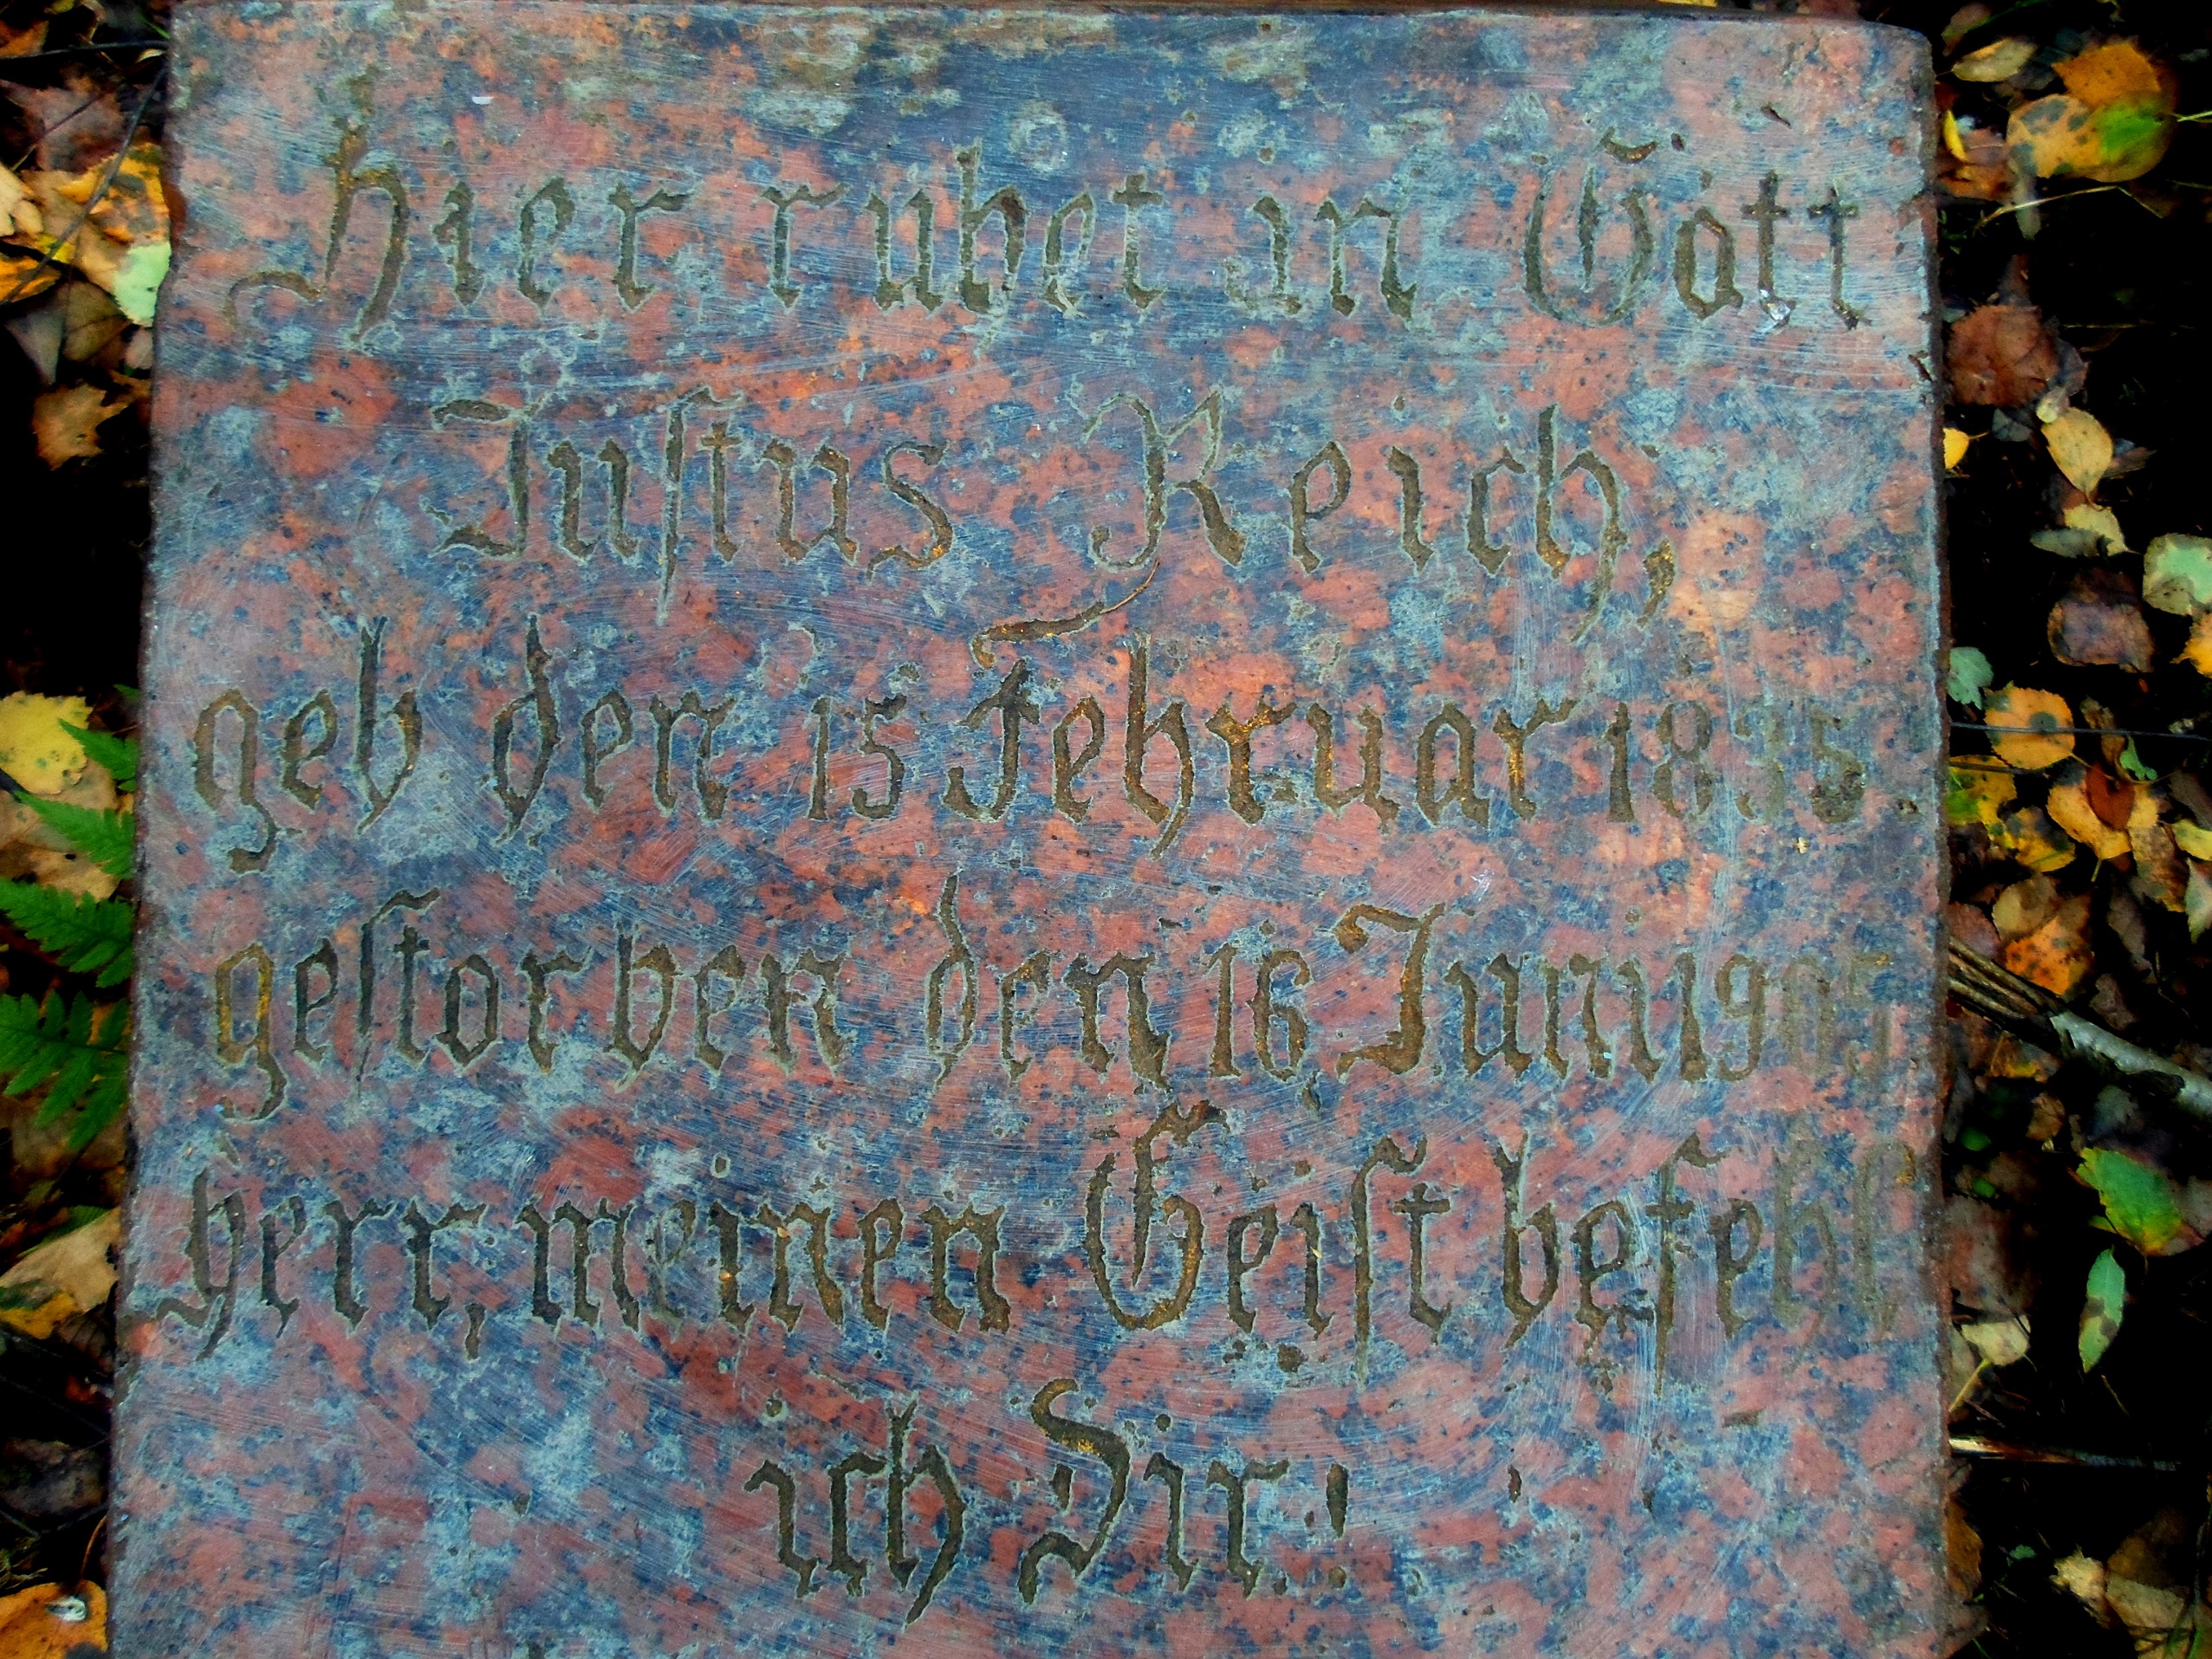 Hier ruhet in Gott
Justus Reich,
geb den 15 Februar 1835.
gestorben den 16 Juni
Herr, meinen Geist befehl
ich Dir!